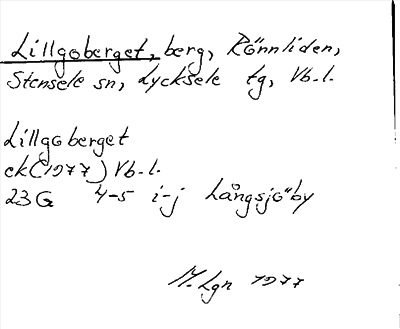 Lillgoberget, berg, Rönnliden,
Stensele sn, Lycksele tg, Vb.l.
Lillgoberget
ek (1977) Vb.l.
23G 4-5 i-j Långsjöby
M.Lgn 1977